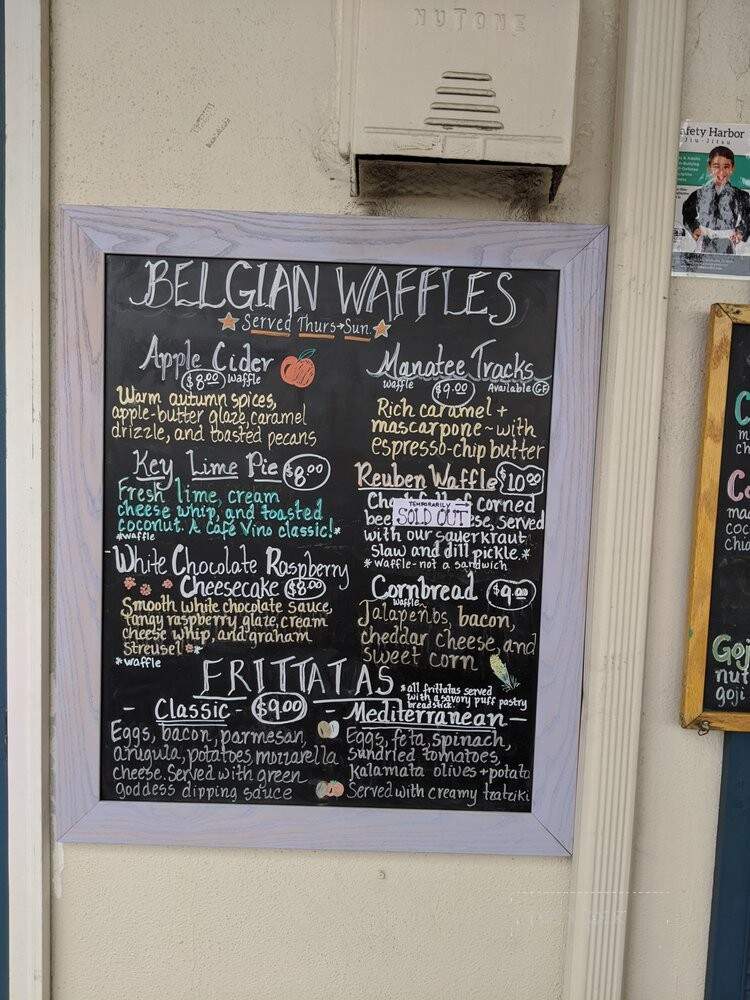 NUTONE
BELGIAN WAFFLES
Served Thurs→Sun.
Apple Cider
$8.00 Waffle
Warm autumn spices,
apple-butter glaze, caramel
drizzle, and toasted pecans
Key Lime Pie $8.00
Fresh lime, cream
cheese whip, and toasted
coconut. A Café Vino classic!*
*waffle
White Chocolate Raspberry
Cheesecake $8.00
Smooth white chocolate sauce,
tangy raspberry glaze, cream
cheese whip, and graham
streusel *
*waffle
Manatee Tracks
Waffle $9.00 Available GF
Rich caramel +
mascarpone~with
espresso-chip butter
Reuben Waffle $10.00
corned
TEMPORARILY
SOLD OUT
served
with our sauerkraut
slaw and dill pickle.*
*waffle-not a sandwich
Cornbread $9.00
Waffle
Jalapeños, bacon,
cheddar cheese, and
sweet corn
FRITTATAS
*all frittatas served
with a savory puff pastry
breadstick.
- Classic - $9.00
Eggs, bacon, parmesan,
arugula, potatoes, mozzarella
cheese. Served with green
goddess dipping sauce
- Mediterranean -
Eggs, feta, spinach,
sundried tomatoes,
kalamata olives + potato
Served with creamy tzatziki
afety Harbor
Jiu-Jitsu
Goj
nut
goji